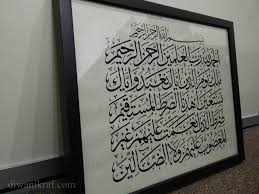 بسم الله الرحمن الرحيم
الحمد لله رب العالمين الرحمن الرحيم
ملك يوم الدين اياك نعبد واياك
نستعين اهدنا الصراط المستقيم
صراط الذين انعمت عليهم غير
المغضوب عليهم ولا الضالين
diwanikraf.com